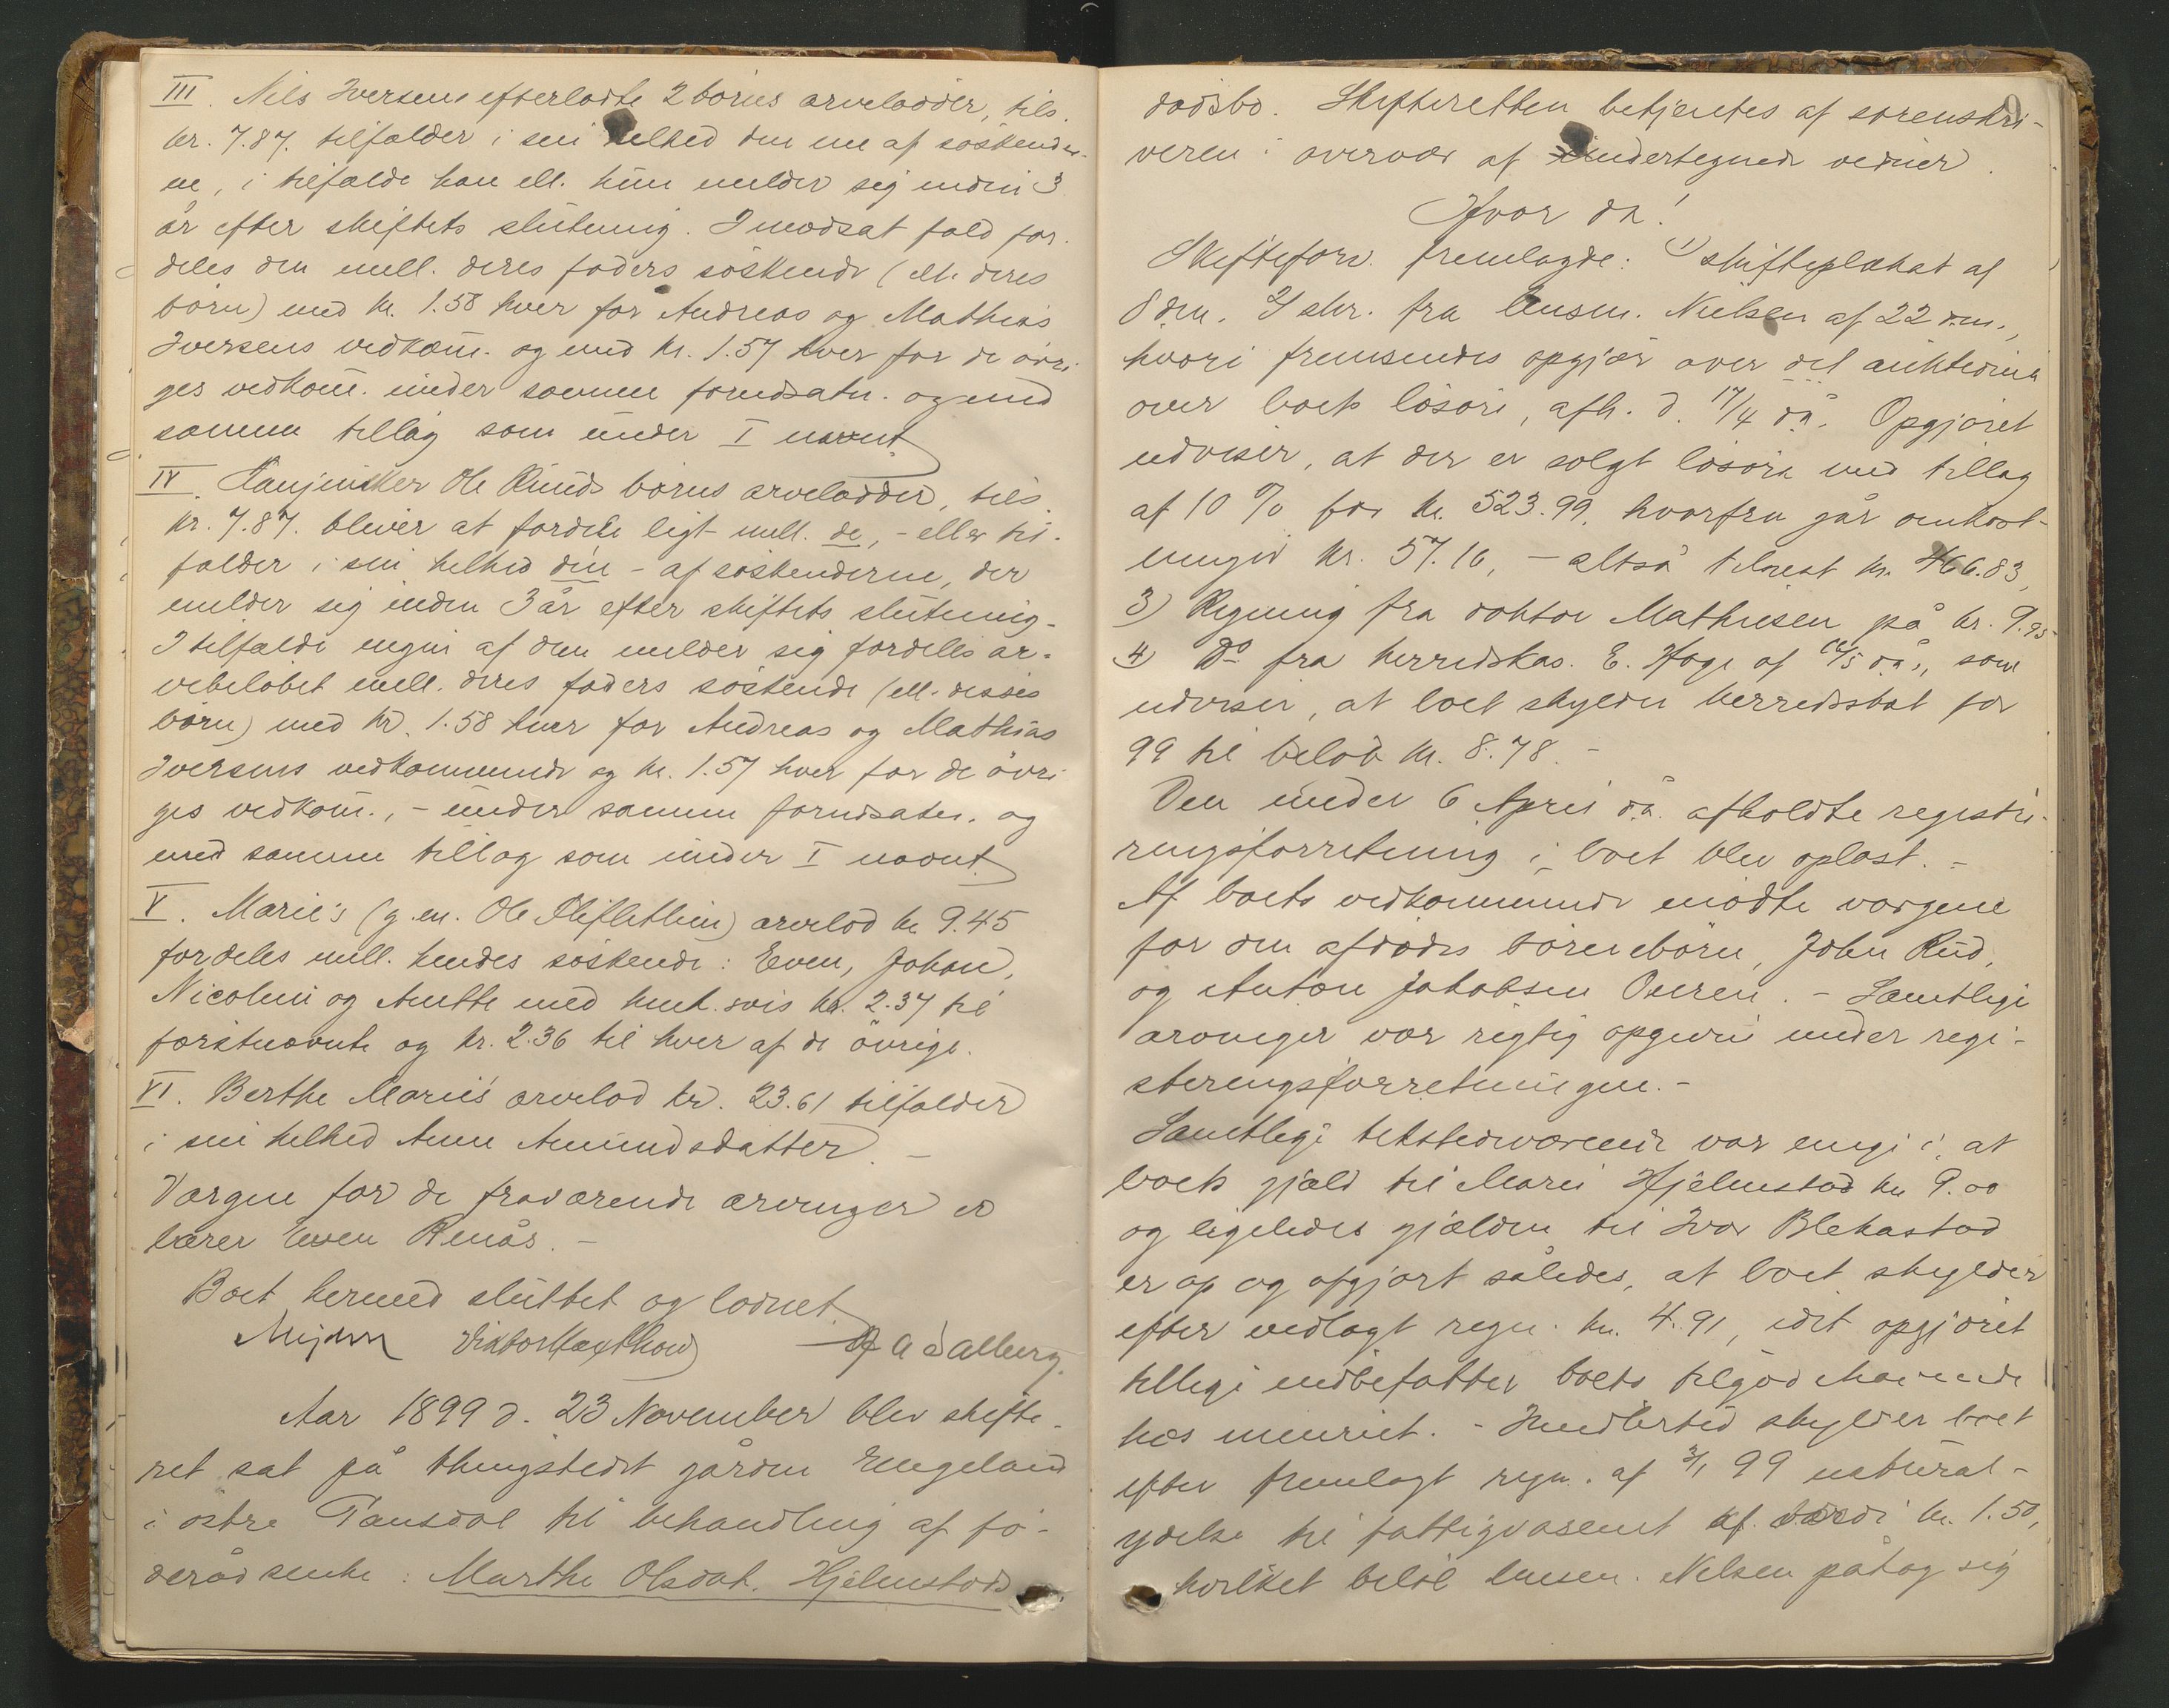 III. Nils Iversens efterladte 2 börns arvelodder, tils.
kr. 7.87. tilfalder i sin helhed den ene af söskender-
ne, i tilfælde han ell. hun melder sig inden 3
år efter skiftets slutning. I modsat fald for-
deles den mell. deres faders söskende (ell. deres
börn) med kr. 1.58 hver for Andreas og Mathias
Iversens vedkom. og med kr. 1.57 hver for de övri-
ges vedkom. under samme forudsætn. og med
samme tillæg som under I nævnt.
IV. Ole Ruuds börns arvelodder, tils.
kr. 7.87. bliver at fordele ligt mell. de, - eller til-
falder i sin helhed den - af söskenderne, der
melder sig inden 3 år efter skiftets slutning.
I tilfælde ingen af dem melder sig fordeles ar-
vebelöbet mell. deres faders söskende (ell. disses
börn) med kr. 1.58 hver for Andreas og Mathias
Iversens vedkommende og kr. 1.57 hver for de övri
ges vedkom., - under samme forudsætn. og
med samme tillæg som under I nævnt.
V. Marie's (g. m. Ole) arvelod kr 9.45
fordeles mell. hendes söskende: Even, Johan,
Nicoline og Anette med henh.svis kr. 2.37 til
förstnævnte og kr. 2.36 til hver af de övrige.
VI. Berthe Maries arvelod kr. 23.61 tilfalder
i sin helhed Anne Amundsdatter. -
Værgen for de fraværende arvinger er
lærer Even Renås. -
Boet hermed sluttet og lodnet.
A Dalberg.
Aar 1899 d. 23 November blev skifte-
ret sat på thingstedet gården Engeland
i östre Gausdal til behandling af fö-
deråd senke: Marthe Olsdat. Hjelmstads
dödsbo. Skifteretten betjentes af sorenskri-
veren i overvær af undertegnede vidner.
Hvor da!
Skifteforv. fremlagde: 1) skifteplakat af
8 dm. 2) skr. fra lensm. Nielsen af 22 d.m.,
hvori fremsendes opgjör over det auktion
over boets lösöre, afh. d. 17/4 d.å. Opgjöret
udviser, at der er solgt lösöre med tillæg
af 10 % for kr. 523.99, hvorfra går omkost-
ninger kr. 57.16, - altså tilrest kr. 466.83,
3) Regning fra doktor Mathiesen på kr. 9.95
4) Do fra herredskas. E. Hage af /5 d.å., som
udviser, at boet skylder herredsskat for
99 til belöb kr. 8.78. -
Den under 6 April d.å. afholdte registre-
ringsforretning i boet blev oplæst. -
Af boets vedkommende mödte værgene
for den afdödes börnebörn, John Rud,
og Anton Jakobsen. - Samtlige
arvinger var rigtig opgivne under regi-
streringsforretningen. -
Samtlige tilstedeværende var enige i, at
boets gjæld til Marie Hjelmstad kr 9.00
og ligeledes gjælden til Iver Blekastad
er op og afgjort således, at boet skylder
efter vedlagt regn. kr. 4.91, idet opgjöret
tillige indbefatter boets tilgodehavende
hos meieriet. - Imidlertid skylder boet
efter fremlagt regn. af 3/1 99 natural-
ydelse til fattigvæsenet af værdi kr. 1.50,
hvilket belöb lensm. Nielsen påtog sig